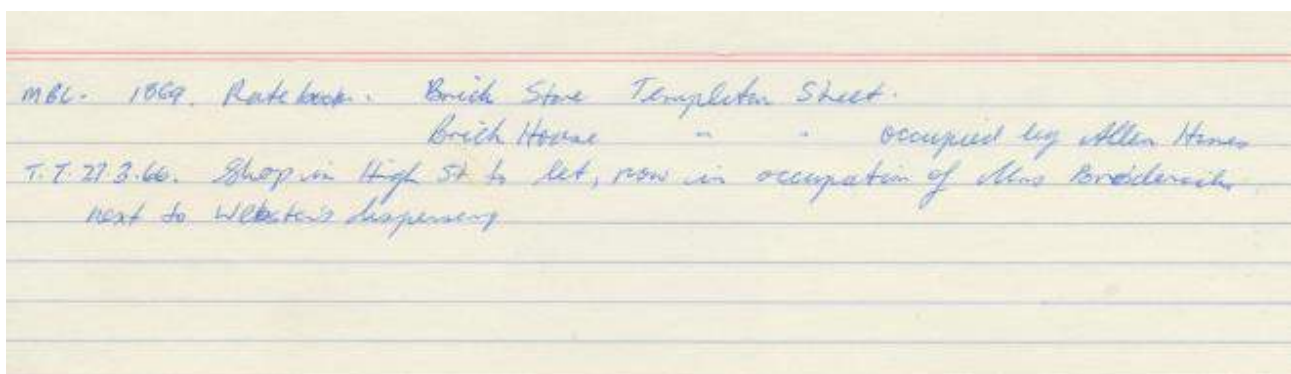 MBL. 1869. Rate book. Brick Store Templeton Street.
Brick House " " occupied by Allen Hines
T.T. 27.3.66. Shop in High St to let, now in occupation of Mrs Broderick
next to Webster's dispensary